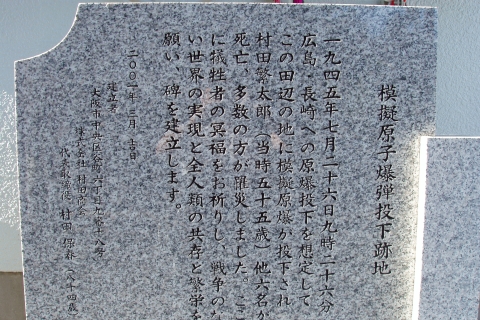 模擬原子爆弾投下跡地
一九四五年七月二十六日九時二十六分
広島・長崎への原爆投下を想定して
この田辺の地に模擬原爆が投下され
村田繁太郎（当時五十五歳）他六名が
死亡、多数の方が罹災しました。ここ
に犠牲者の冥福をお祈りし、戦争のな
い世界の実現と全人類の共存と繁栄を
願い、碑を建立します。
二〇〇一年三月
建立者
大阪市中央区
株式会社村田商会
代表取締役 村田保春（八十四歳